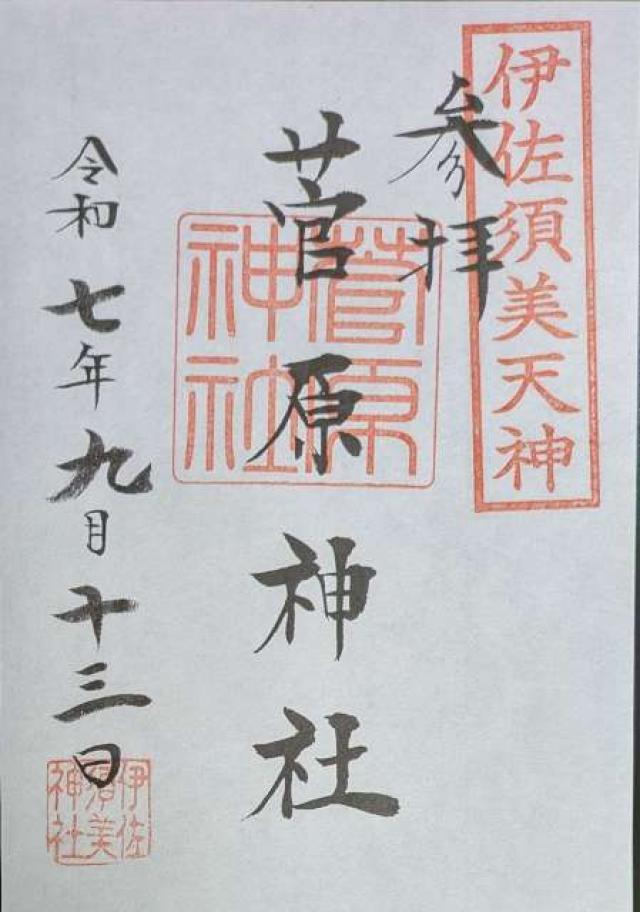 伊佐須美天神
参拝
菅原神社
菅原
神社
令和七年九月十三日
伊佐
須美
神社